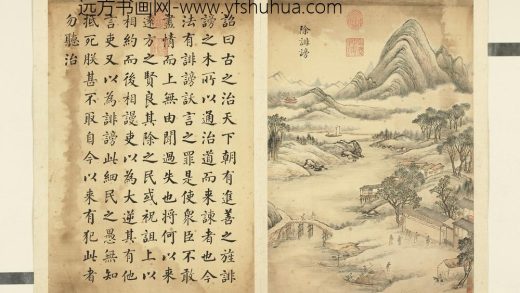 远方书画网-www.yfshuhua.com
除誹謗
詔曰古之治天下朝有進善之旌誹
謗之木所以通治道而來諫者也今
法有誹謗訞言之罪是使衆臣不敢
盡情而上無由聞過失也將何以來
遠方之賢良其除之民或祝詛上以
相約而後相謾吏以為大逆其有他
言吏又以為誹謗此細民之愚無知
抵死朕甚不取自今以來有犯此者
勿聽治